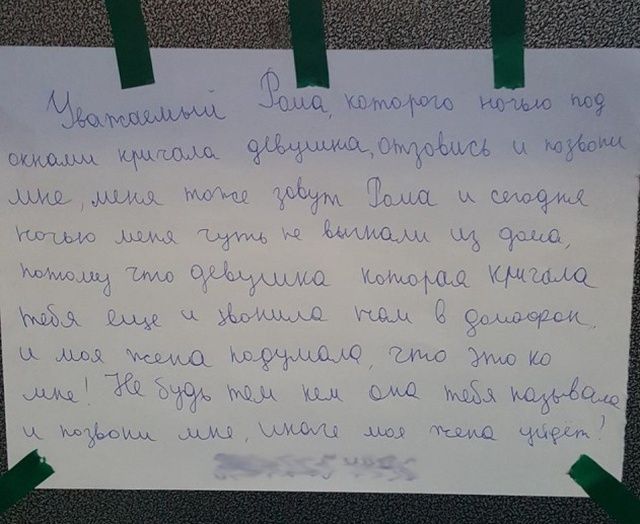 Уважаемый Рома, которого ночью под
окнами кричала девушка, отзовись и позвони
мне, меня тоже зовут Рома и сегодня
ночью меня чуть не выгнали из дома,
потому что девушка которая кричала
тебя еще и звонила нам в домофон,
и моя жена подумала, что это ко
мне! Не будь тем кем она тебя называла
и позвони мне, иначе моя жена уйдёт!